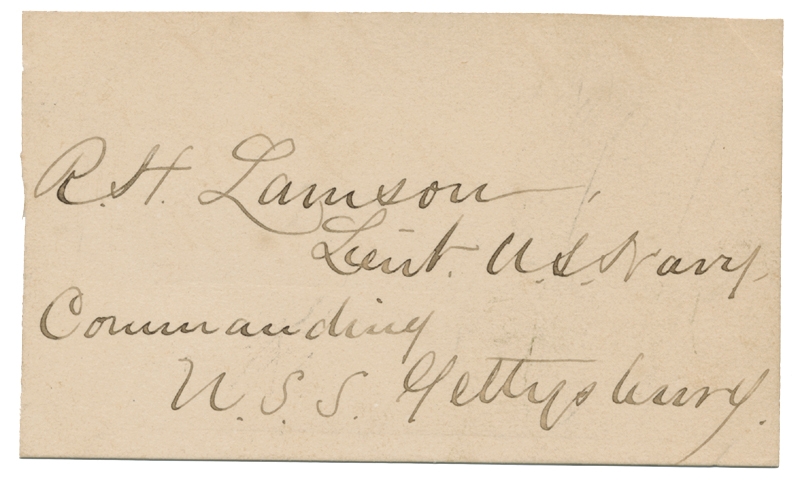 R.H. Lamson,
Lieut. U.S. Navy.
Commanding
U.S.S. Gettysburg.